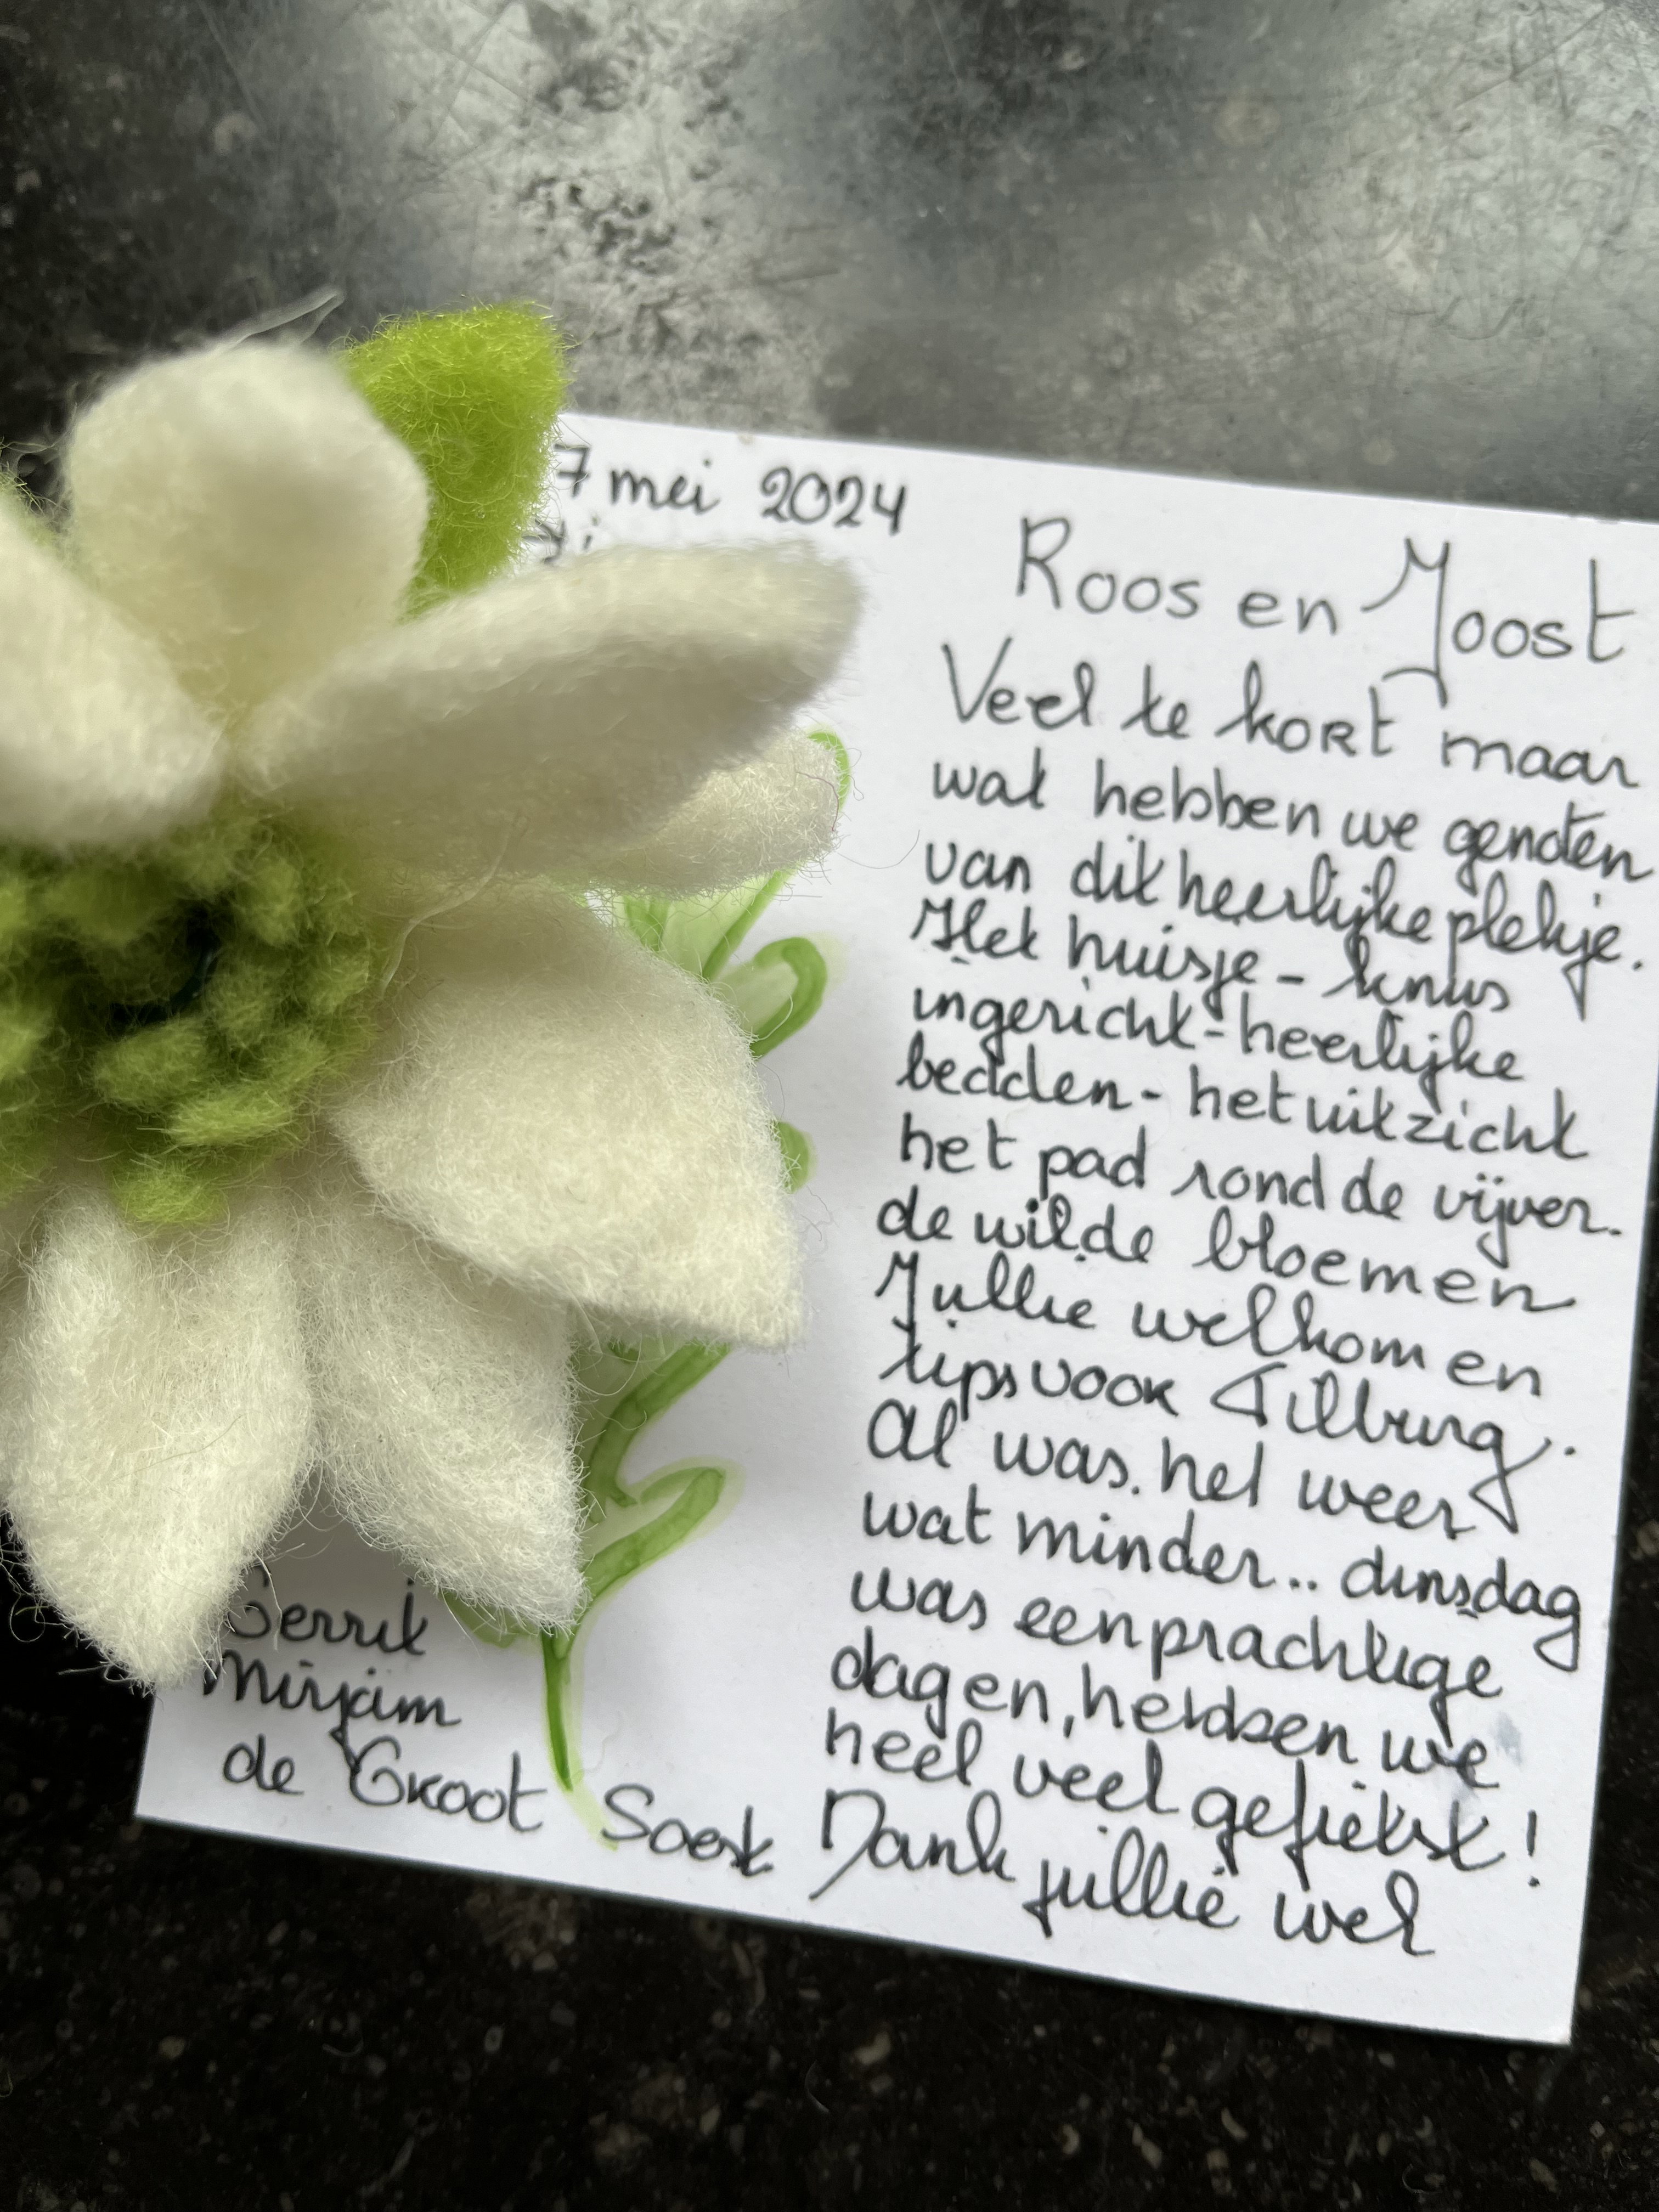 7 mei 2024
Roos en Joost
Veel te kort maar
wat hebben we genoten
van dit heerlijke plekje.
Het huisje - knus
ingericht - heerlijke
bedden - het uitzicht
het pad rond de vijver.
de wilde bloemen
Jullie welkom en
tips voor Tilburg.
Al was het weer
wat minder.. dinsdag
was een prachtige
dagen, hebben we
heel veel gefietst!
Dank jullie wel
Gerrit
Mirjam
de Groot Soest